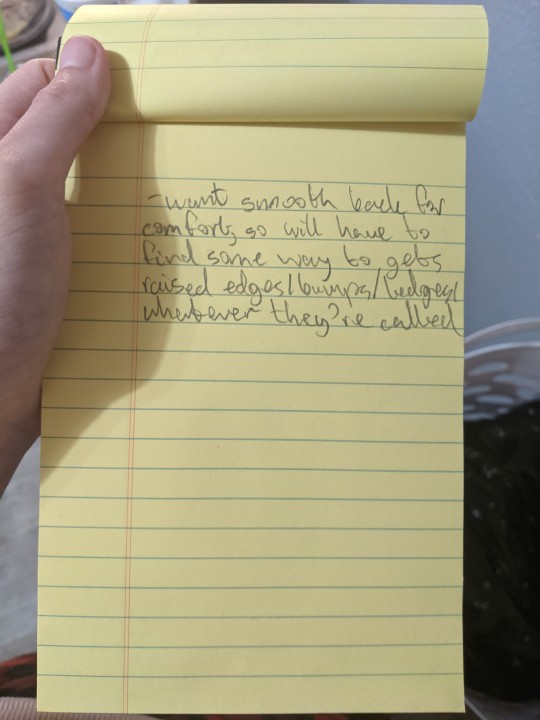 -want smooth back for
comfort, so will have to
find some way to gets
raised edges/bumps/ledges/
whatever they're called